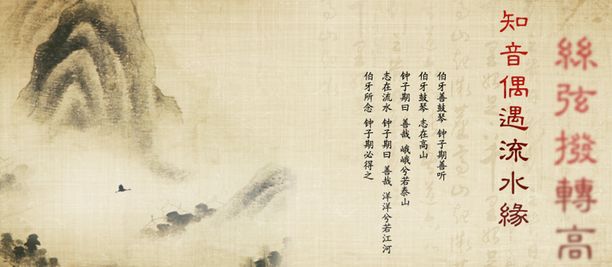 絲弦撥轉高
知音偶遇流水緣
伯牙善鼓琴 钟子期善听
伯牙鼓琴 志在高山
钟子期曰 善哉 峨峨兮若泰山
志在流水 钟子期曰 善哉 洋洋兮若江河
伯牙所念 钟子期必得之